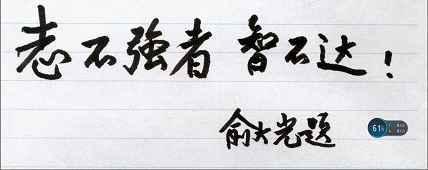 志不強者 智不达!
俞大光题
61%